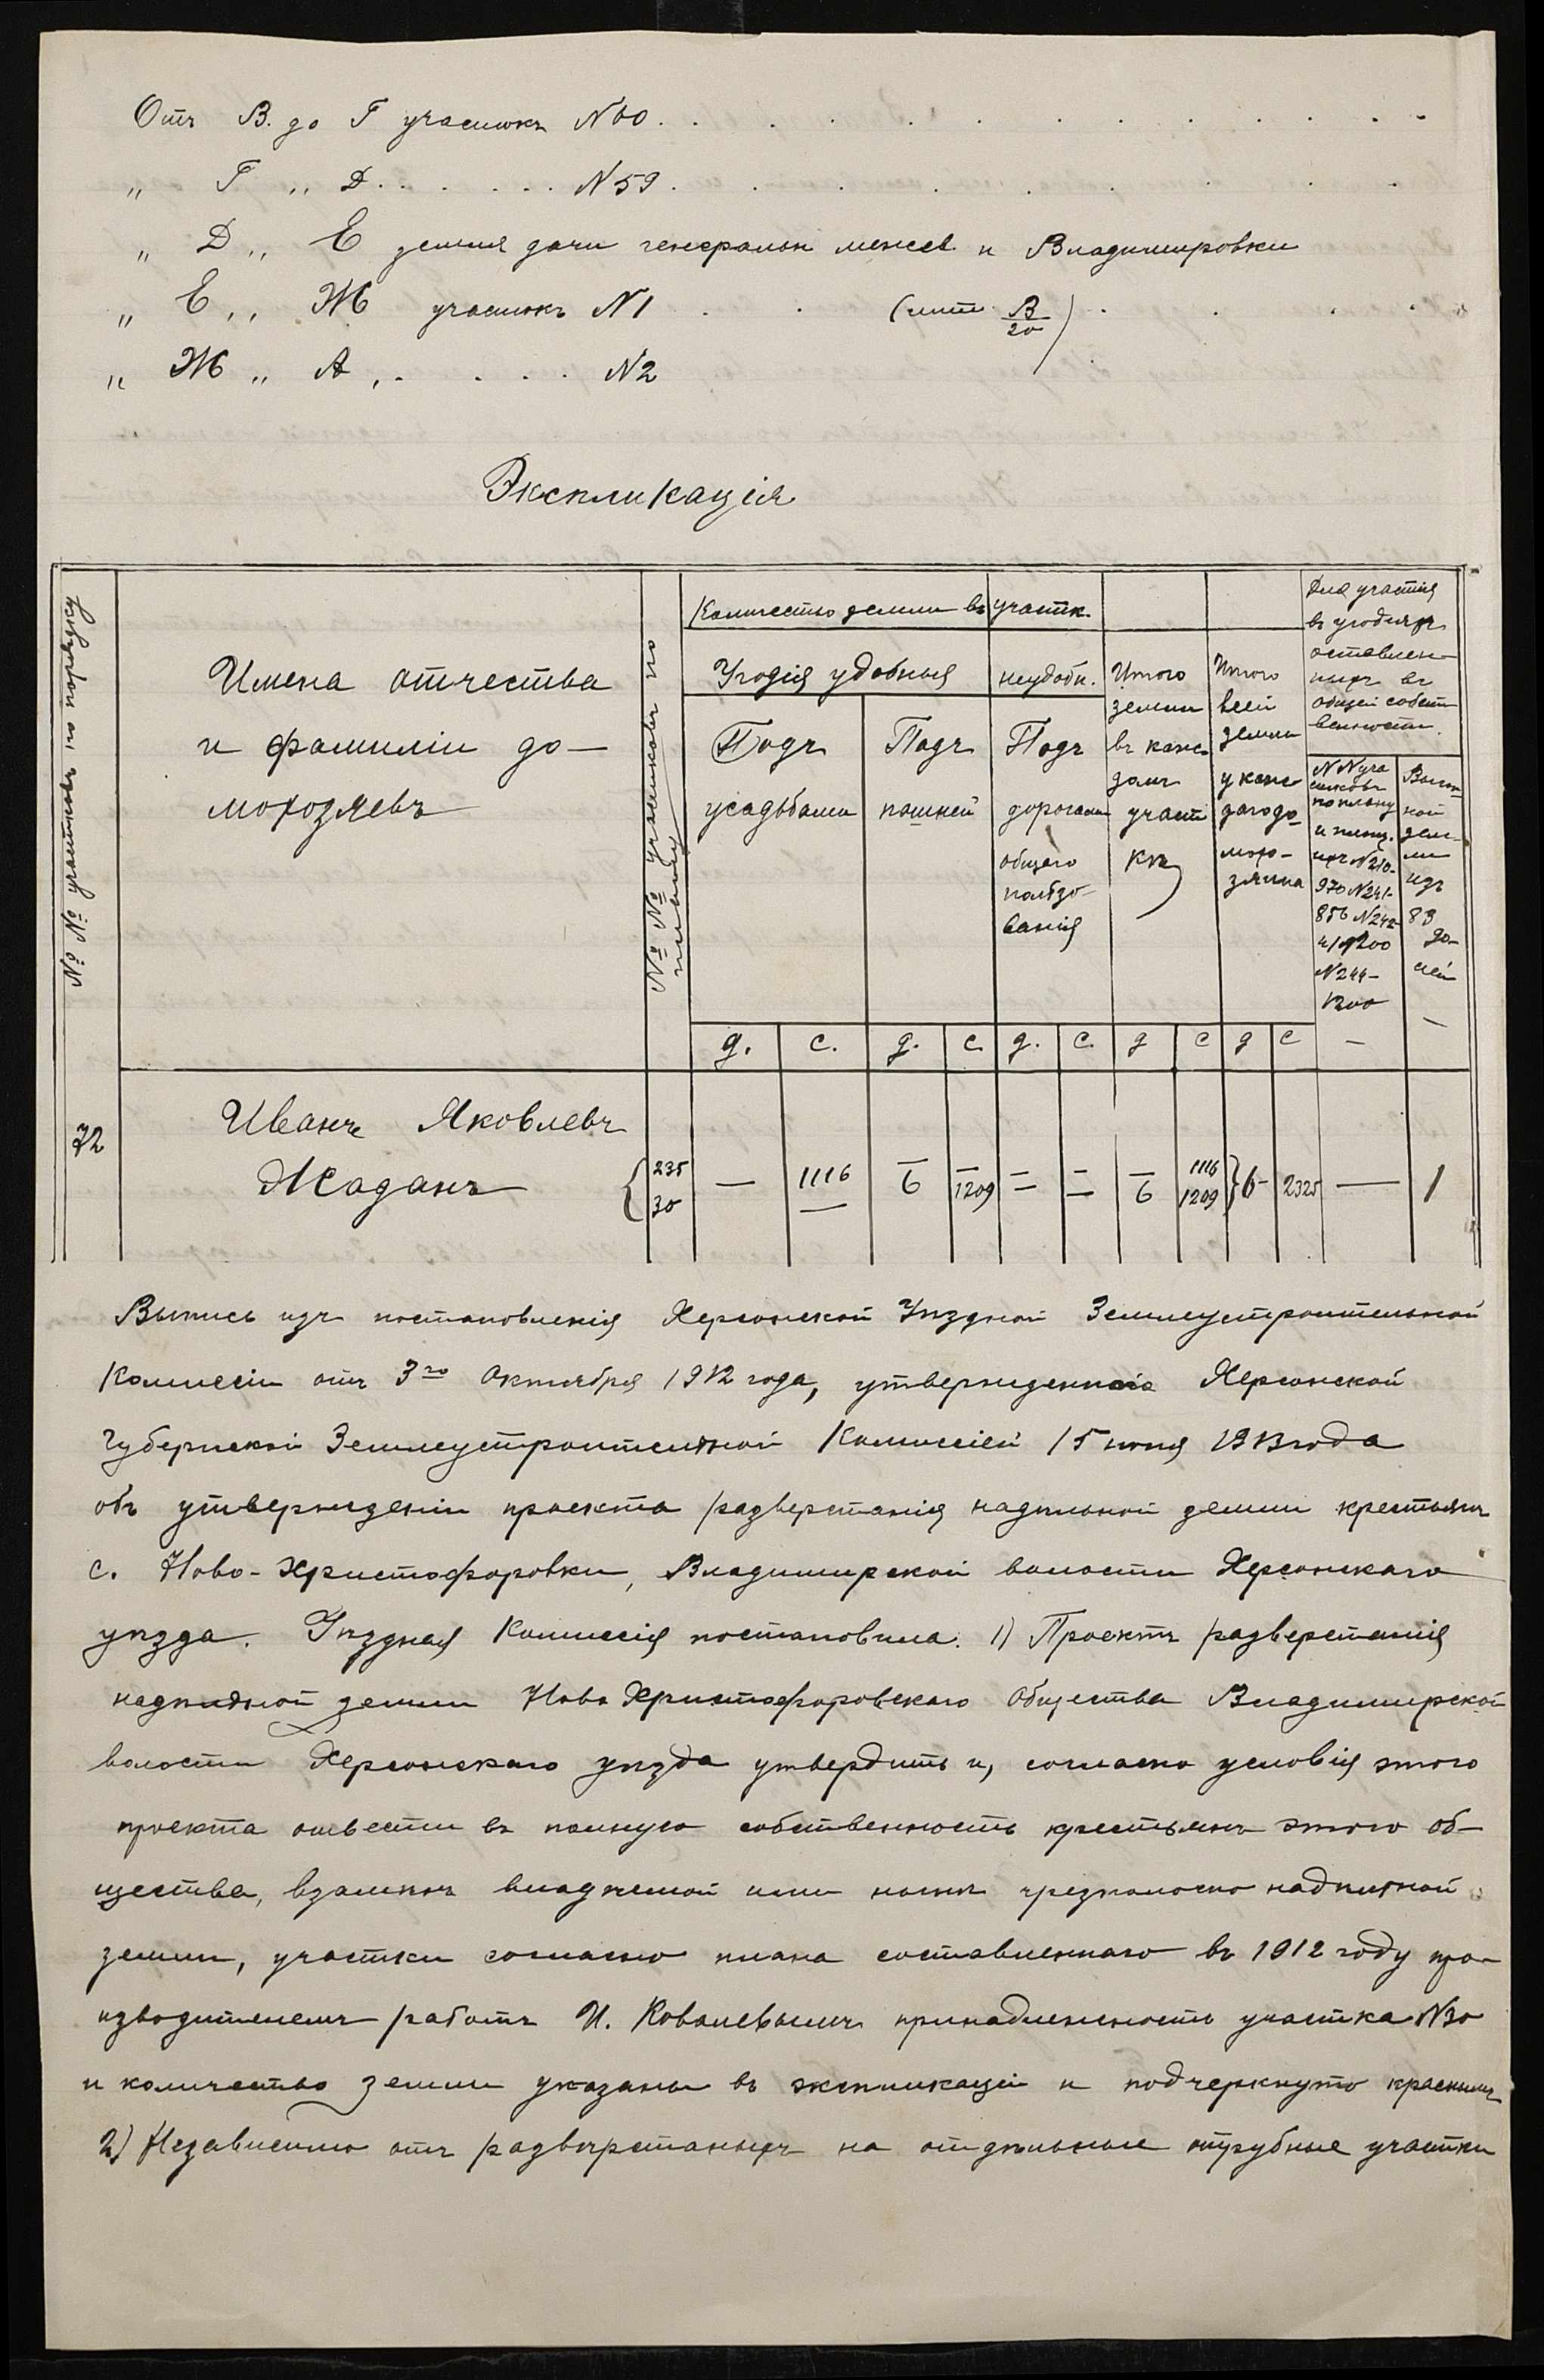 Отъ В. до Г участокъ N60
„ Г „ Д N59
„ Д „ Е земля дачи генеральн межев и Владимировки
„ Е „ Ж участокъ N1 (лит В/20)
„ Ж „ А N2
Экспликація
№ № участковъ по
Имена отчества
и фамиліи до-
мохозяевъ
№ № участковъ по
плану
Количество земли въ участк.
Угодія удобныя
неудобн.
Подъ
усадьбами
Подъ
пашней
Подъ
дорогами
общаго
пользо-
ванія
Итого
земли
въ каж-
домъ
участ
кѣ
Итого
всей
земли
у каж-
даго до-
мохо-
зяина
Для участія
въ угодіяхъ
оставлен-
ныхъ въ
общей собст
венности.
NN уча
стковъ
по плану
и площ.
ихъ N210-
970 N241-
856 N242-
4/1200
N244-
1200
—
ной
зем-
ли
изъ
83
до-
лей
—
д. с. д. с д. с. д с д с
72
Иванъ Яковлевъ
Жаданъ
235 — 1116 — — = — — 1116
30 — 6 1209 = — 6 1209 6 2325 — 1
Выпись изъ постановленія Херсонской Уѣздной Землеустроительной
Комиссіи отъ 3го Октября 1912 года, утвержденнаго Херсонской
Губернской Землеустроительной Комиссіей 15 іюня 1913 года
объ утвержденіи проекта разверстанія надѣльной земли крестьянъ
с. Ново-Христофоровки, Владимирской волости Херсонскаго
уѣзда. Уѣздная Комиссія постановила: 1) Проектъ разверстанія
надѣльной земли Ново Христофоровскаго Общества Владимирской
волости Херсонскаго уѣзда утвердить и, согласно условія этого
проекта отвести въ полную собственность крестьянъ этого об-
щества, взамѣнъ владѣемой ими нынѣ чрезполосно надѣльной
земли, участки согласно плана составленнаго въ 1912 году про-
изводителемъ работъ И. Ковалевымъ принадлежность участка N30
и количество земли указаны въ экспликаціи и подчеркнуто краснымъ
2) Независимо отъ разверстаныхъ на отдѣльные отрубные участки